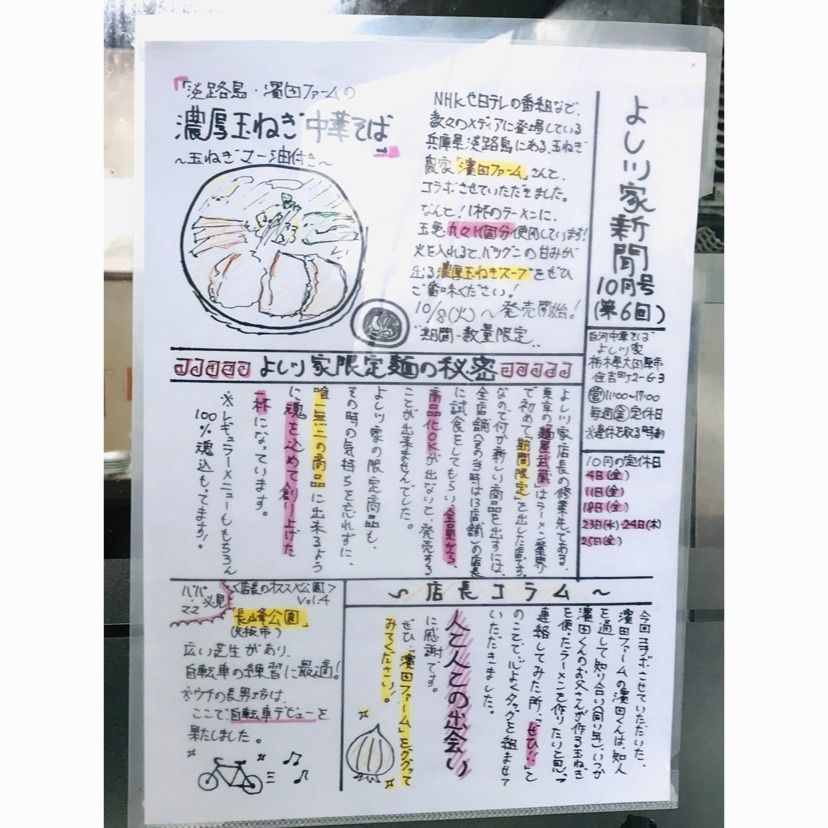 よし川家新聞
10月号
(第6回)
白河中華そば
よし川家
栃木県大田原市
住吉町2-6-3
営11:00〜17:00
毎週金定休日
※連休を取る時あり
10月の定休日
4日(金)
11日(金)
18日(金)
23日(水)・24日(木)
25日(金)
「淡路島・濱田ファームの
濃厚玉ねぎ中華そば」
〜玉ねぎマー油付き〜
NHKや日テレの番組など、
数々のメディアに登場している
兵庫県淡路島にある、玉ねぎ
農家「濱田ファーム」さんと、
コラボさせていただきました。
なんと！1杯のラーメンに、
玉ねぎ丸々1個分使用しています！
火を入れると、バツグンの甘みが
出る濃厚玉ねぎスープをぜひ
ご賞味ください！
10/8(火)〜発売開始！
期間・数量限定
よし川家限定麺の秘密
よし川家店長の修業先である、
東京の「麺屋武蔵」はラーメン業界
で初めて「期間限定」を出したお店です。
なので何か新しい商品を出すには、
全店舗(その当時は13店舗)の店長
に試食をしてもらい、全員から、
商品化OKが出ないと発売する
ことが出来ませんでした。
よし川家の限定商品も、
その時の気持ちを忘れずに、
唯一無二の商品に出来るよう
に魂を込めて創り上げた
一杯になっています。
※レギュラーメニューももちろん
100%魂込もってます！
〜店長コラム〜
今回コラボさせていただいた、
濱田ファームの濱田くんは、知人
を通して知り合い(同い年)、いつか
濱田くんのお父さんが作る玉ねぎ
を使ったラーメンを作りたいと思って
連絡してみた所、「ぜひ！」と
のことで、心よくタッグを組ませて
いただきました。
人と人との出会い
に感謝です。
ぜひ「濱田ファーム」をググって
みてください！
パパ・ママ必見
<店長のオススメ公園>
Vol.4
「長峰公園」
(矢板市)
広い芝生があり、
自転車の練習に最適！
※ウチの長男坊は、
ここで自転車デビューを
果たしました。